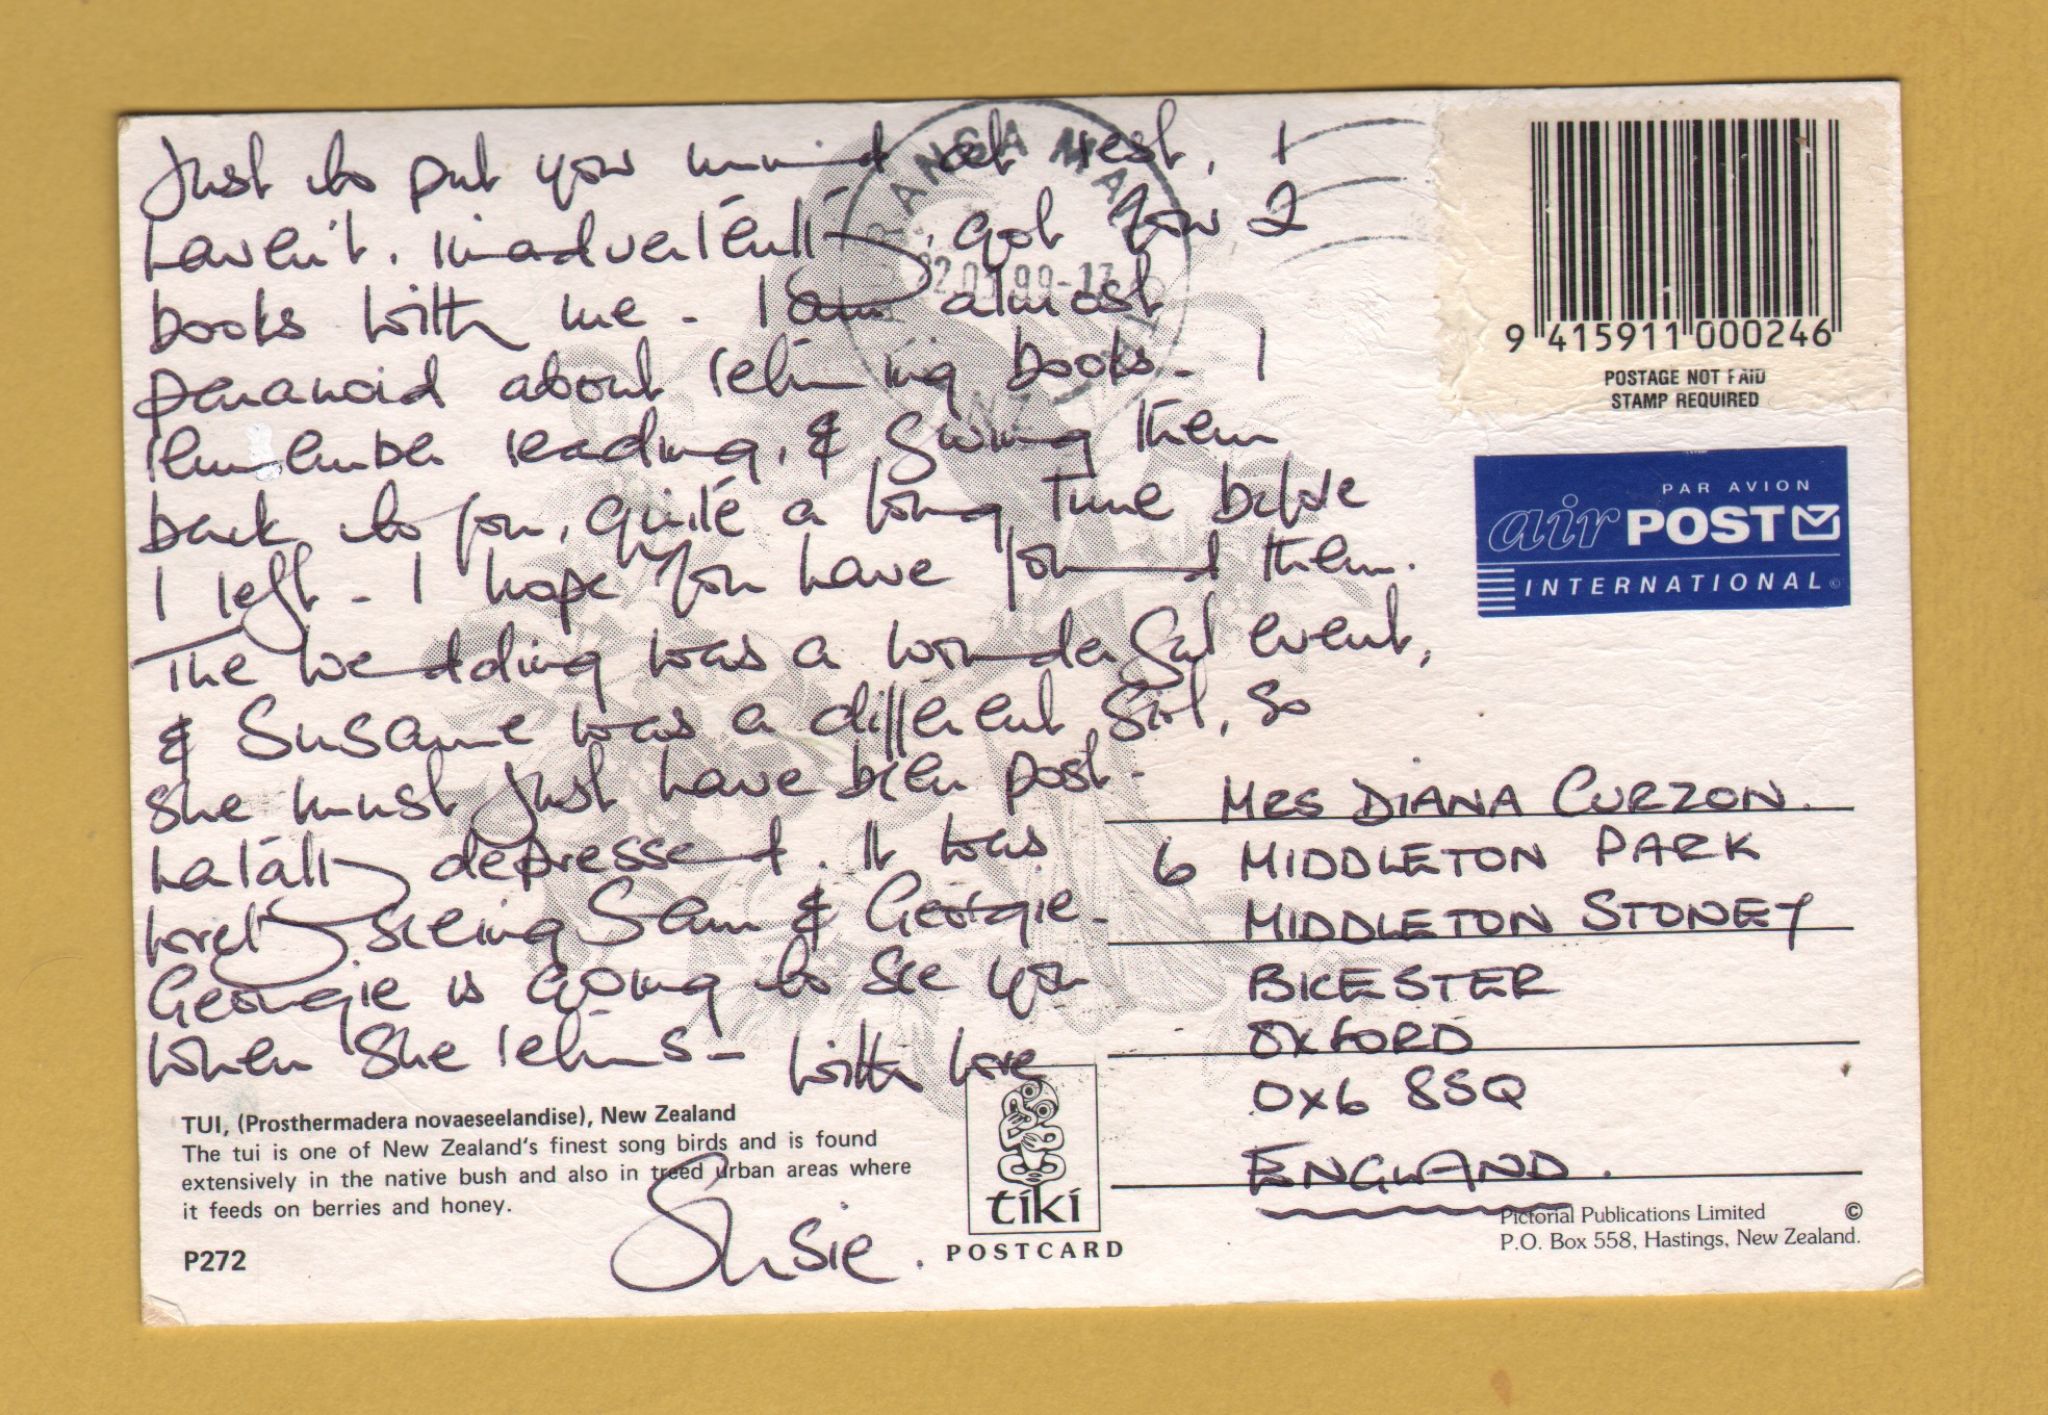 Just to put your mind at rest, I
haven't, inadvertently, got your 2
books with me - I am almost
paranoid about returning books - I
remember reading, & giving them
back to you, quite a long time before
I left - I hope you have found them.
The wedding was a wonderful event,
& Susanne was a different girl, so
she must just have been post-
natally depressed. It was
lovely seeing Sam & Georgie -
Georgie is going to see you
when she returns - with love
Susie.
TAURANGA MAIL
99-17
9 415911 000246
POSTAGE NOT PAID
STAMP REQUIRED
PAR AVION
air POST
INTERNATIONAL
MRS DIANA CURZON.
6 MIDDLETON PARK
MIDDLETON STONEY
BICESTER
OXFORD
OX6 8SQ
ENGLAND.
TUI, (Prosthermadera novaeseelandise), New Zealand
The tui is one of New Zealand's finest song birds and is found
extensively in the native bush and also in treed urban areas where
it feeds on berries and honey.
P272
tiki
POSTCARD
Pictorial Publications Limited ©
P.O. Box 558, Hastings, New Zealand.